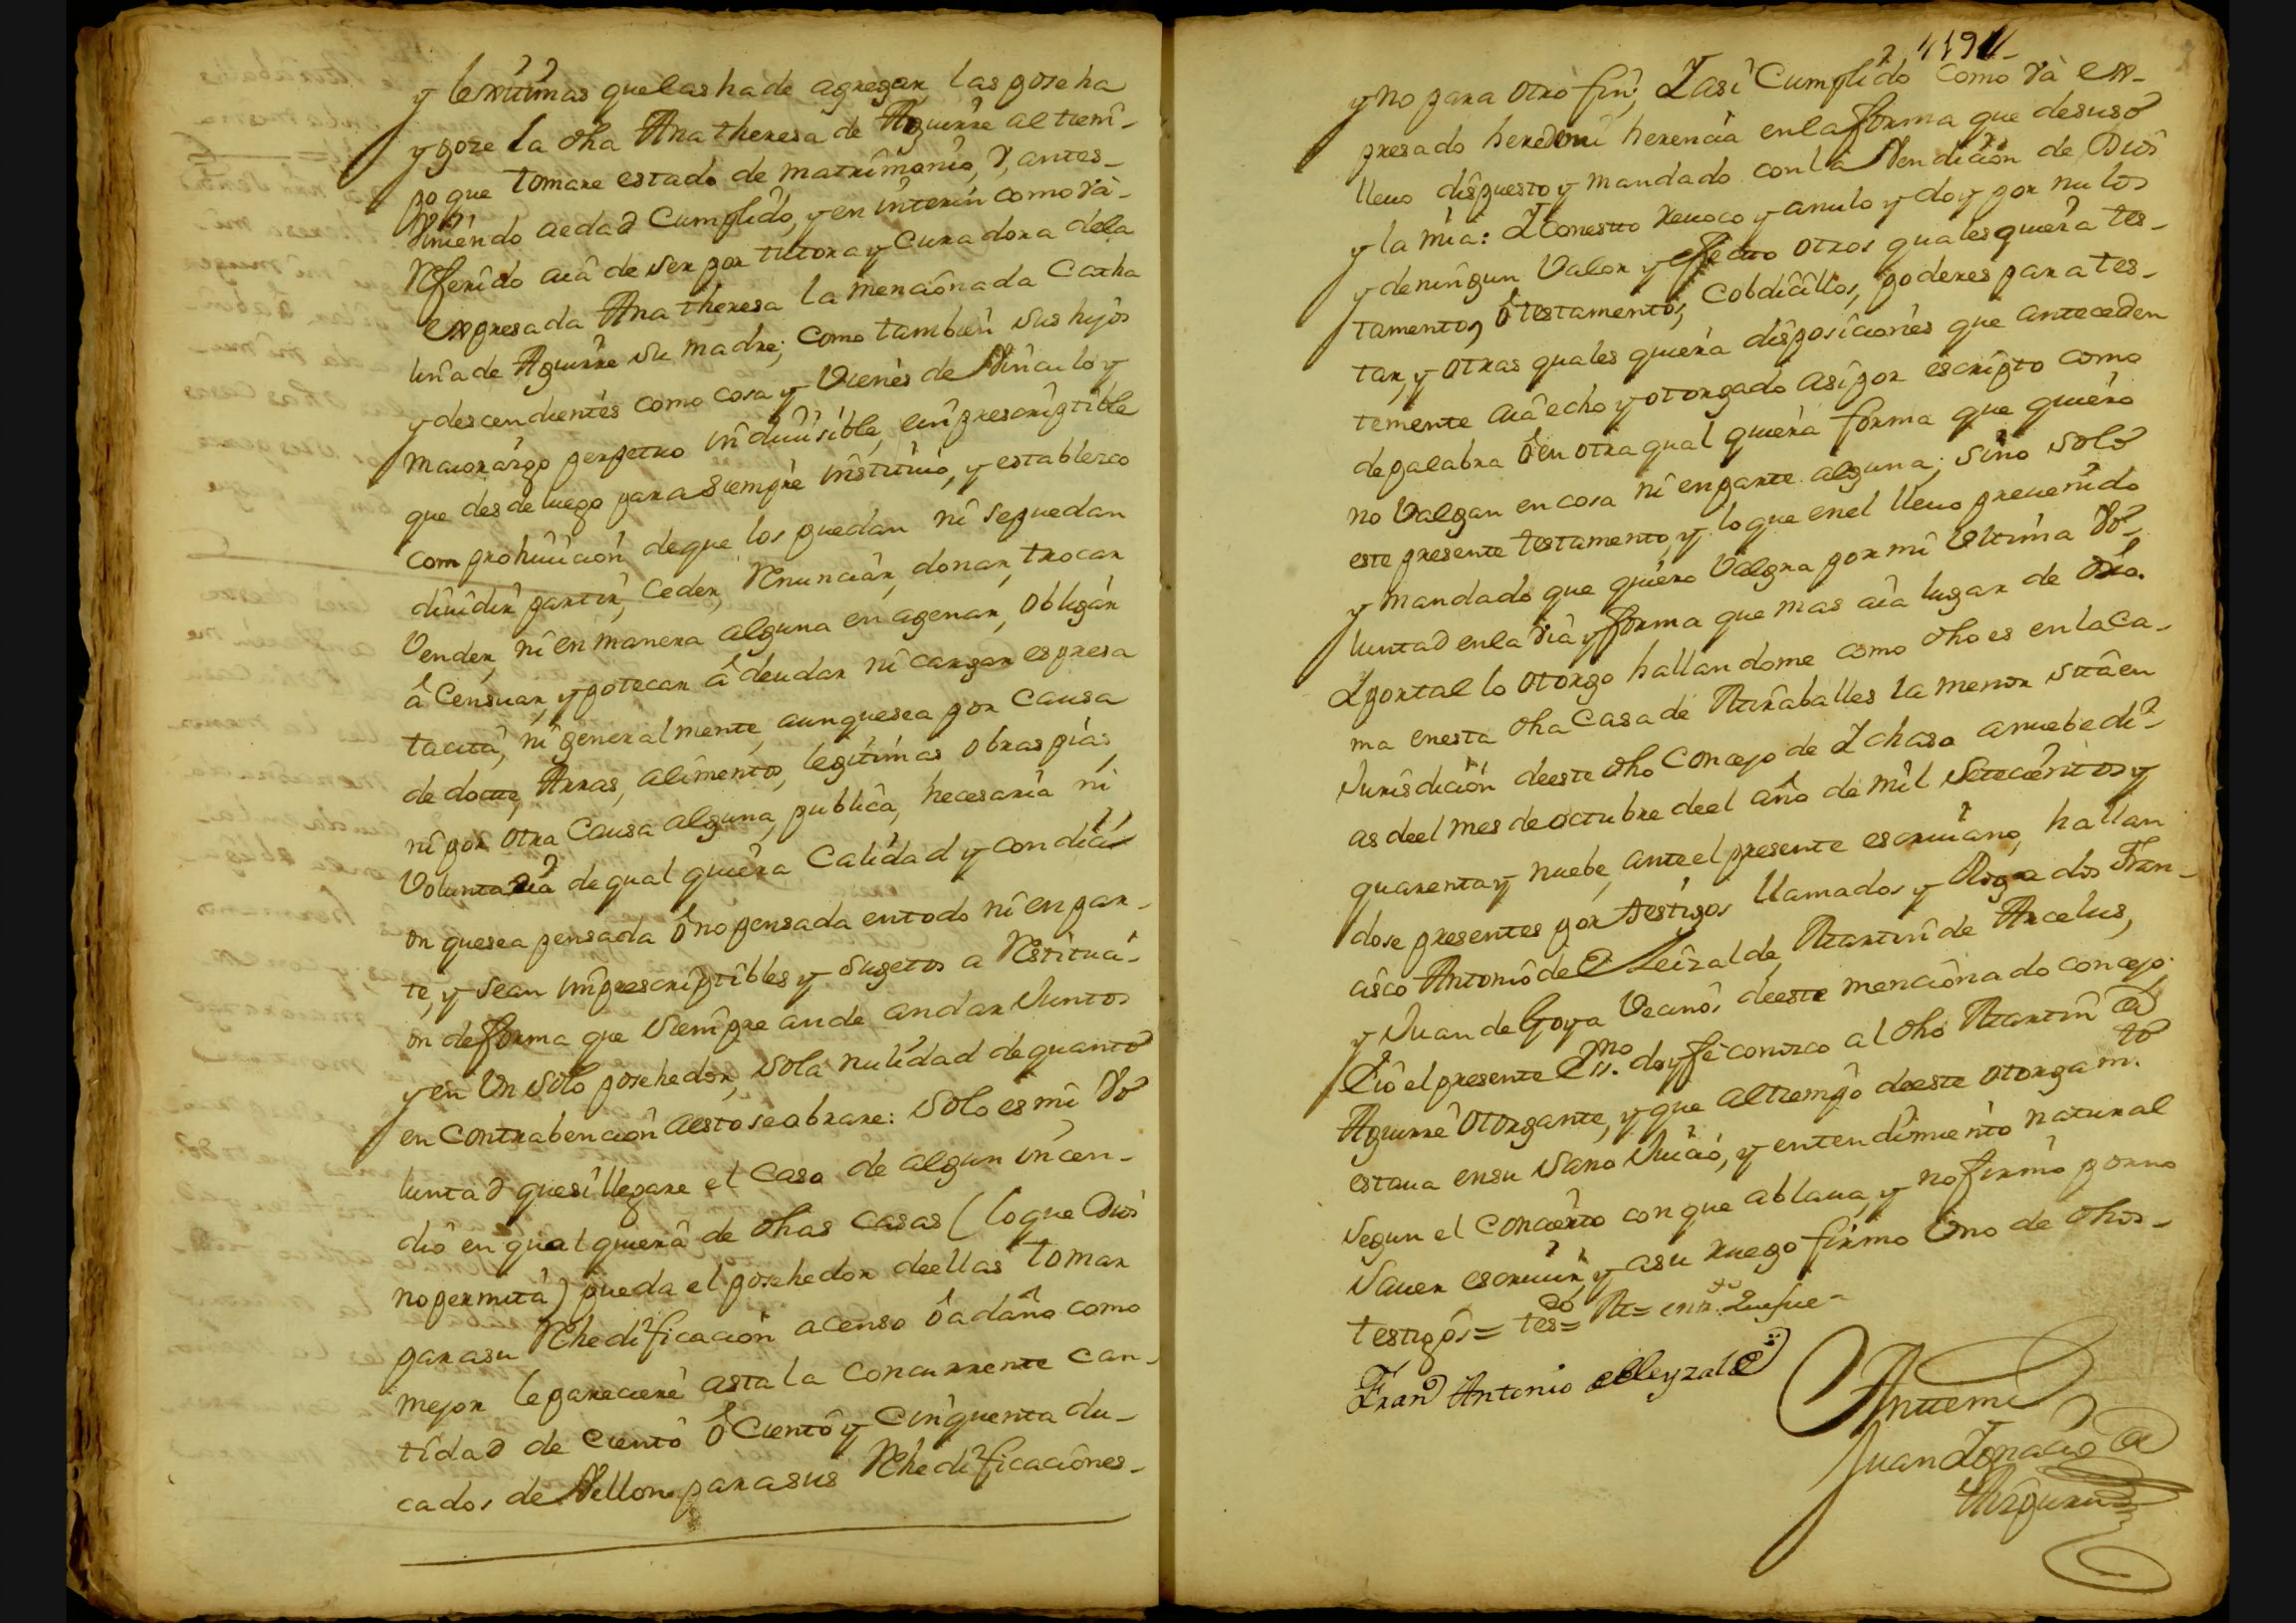 y lexitimas que las ha de agregar, las poseha
y goze la dha Ana theresa de Aguirre al tiem-
po que tomare estado de matrimonio, ò, antes-
viniendo a edad Cumplido, y en interin como và-
Referido aià de ser por tutora y Curadora dela
expresada Ana theresa la mencionada Catha
lina de Aguirre su madre; como tambien sus hijos
y descendientes como cosa y Vienes de Vinculo y
maiorazgo perpetuo indiuisible, e imprescriptible
que desde luego para siempre instituio, y establezco
com prohiuicion de que los puedan ni se puedan
diuidir partir, Ceder, Renunciar, donar, trocar
Vender, ni en manera alguna en agenar, obligar
â Censuar, ypotecar â deudar ni cargar espresa
tacita, ni generalmente, aunque sea por Causa
de docte, Arras, alimentos, legitimas obras pias,
ni por otra Causa alguna, publica, necesaria ni
Voluntaria de qual quiera Calidad y condici
on que sea pensada ô no pensada en todo ni en par-
te, y sean imprescriptibles y sugetos a Restitua-
on de forma que siempre ande andar Juntos
y en Un solo posehedor, sola nulidad de quanto
en contrabencion a esto se obrare: solo es mi vo
luntad que si llegare el Caso de algun incen-
dio en qualquiera de dhas casas (lo que Dios
no permita) pueda el posehedor de ellas tomar
para su Rehedificacion acenso ô a daño como
mejor le pareciere asta la concurrente can-
tidad de ciento ô Ciento y Cinquenta du-
cados de Vellon para sus Rehedificaciones-
419
y no para otro fin; I asi Cumplido como và ex-
presado heredemi herencia en la forma que desuso
lleuo dispuesto y mandado con la Vendicion de Dios
y la mia: I con esto reuoco y anulo y doy por nulos
y de ningun Valor y efecto otros quales quiera tes-
tamento, ô testamentos, Cobdicillos, poderes para tes-
tar, y otras quales quiera disposiciones que anteceden
temente aiâ echo y otorgado asi por escripto como
de palabra ô en otra qual quiera forma que quiero
no Valgan en cosa ni en parte alguna; sino solo
este presente testamento, y lo que en el lleuo preuenido
y mandado que quiero Valgra por mi Ultima Vo-
luntad en la via y forma que mas aia lugar de dro.
I por tal lo otorgo hallandome como dho es en la ca-
ma en esta dha Casa de Miraballes la menor sita en
Jurisdicion de este dho Concejo de Ichaso a nuebe di-
as de el mes de octubre de el año de mil Setecientos y
quarenta y nuebe, ante el presente escriuano, hallan
dose presentes por testigos llamados y Rogados Fran-
cisco Antonio de Leizalde, Martin de Arcelus,
y Juan de Goya Vecinos de este mencionado concejo;
E io el presente Essno. doy fe conozco al dho Martin de
Aguirre otorgante, y que al tiempo de este otorgamto.
estaua en su sano Juicio, y entendimiento natural
segun el concierto con que ablaua, y no firmó por no
sauer escriuir y a su ruego firmo Uno de dhos-
testigos=
Franco Antonio de Leyzalde
Antemi
Juan Ignacio de